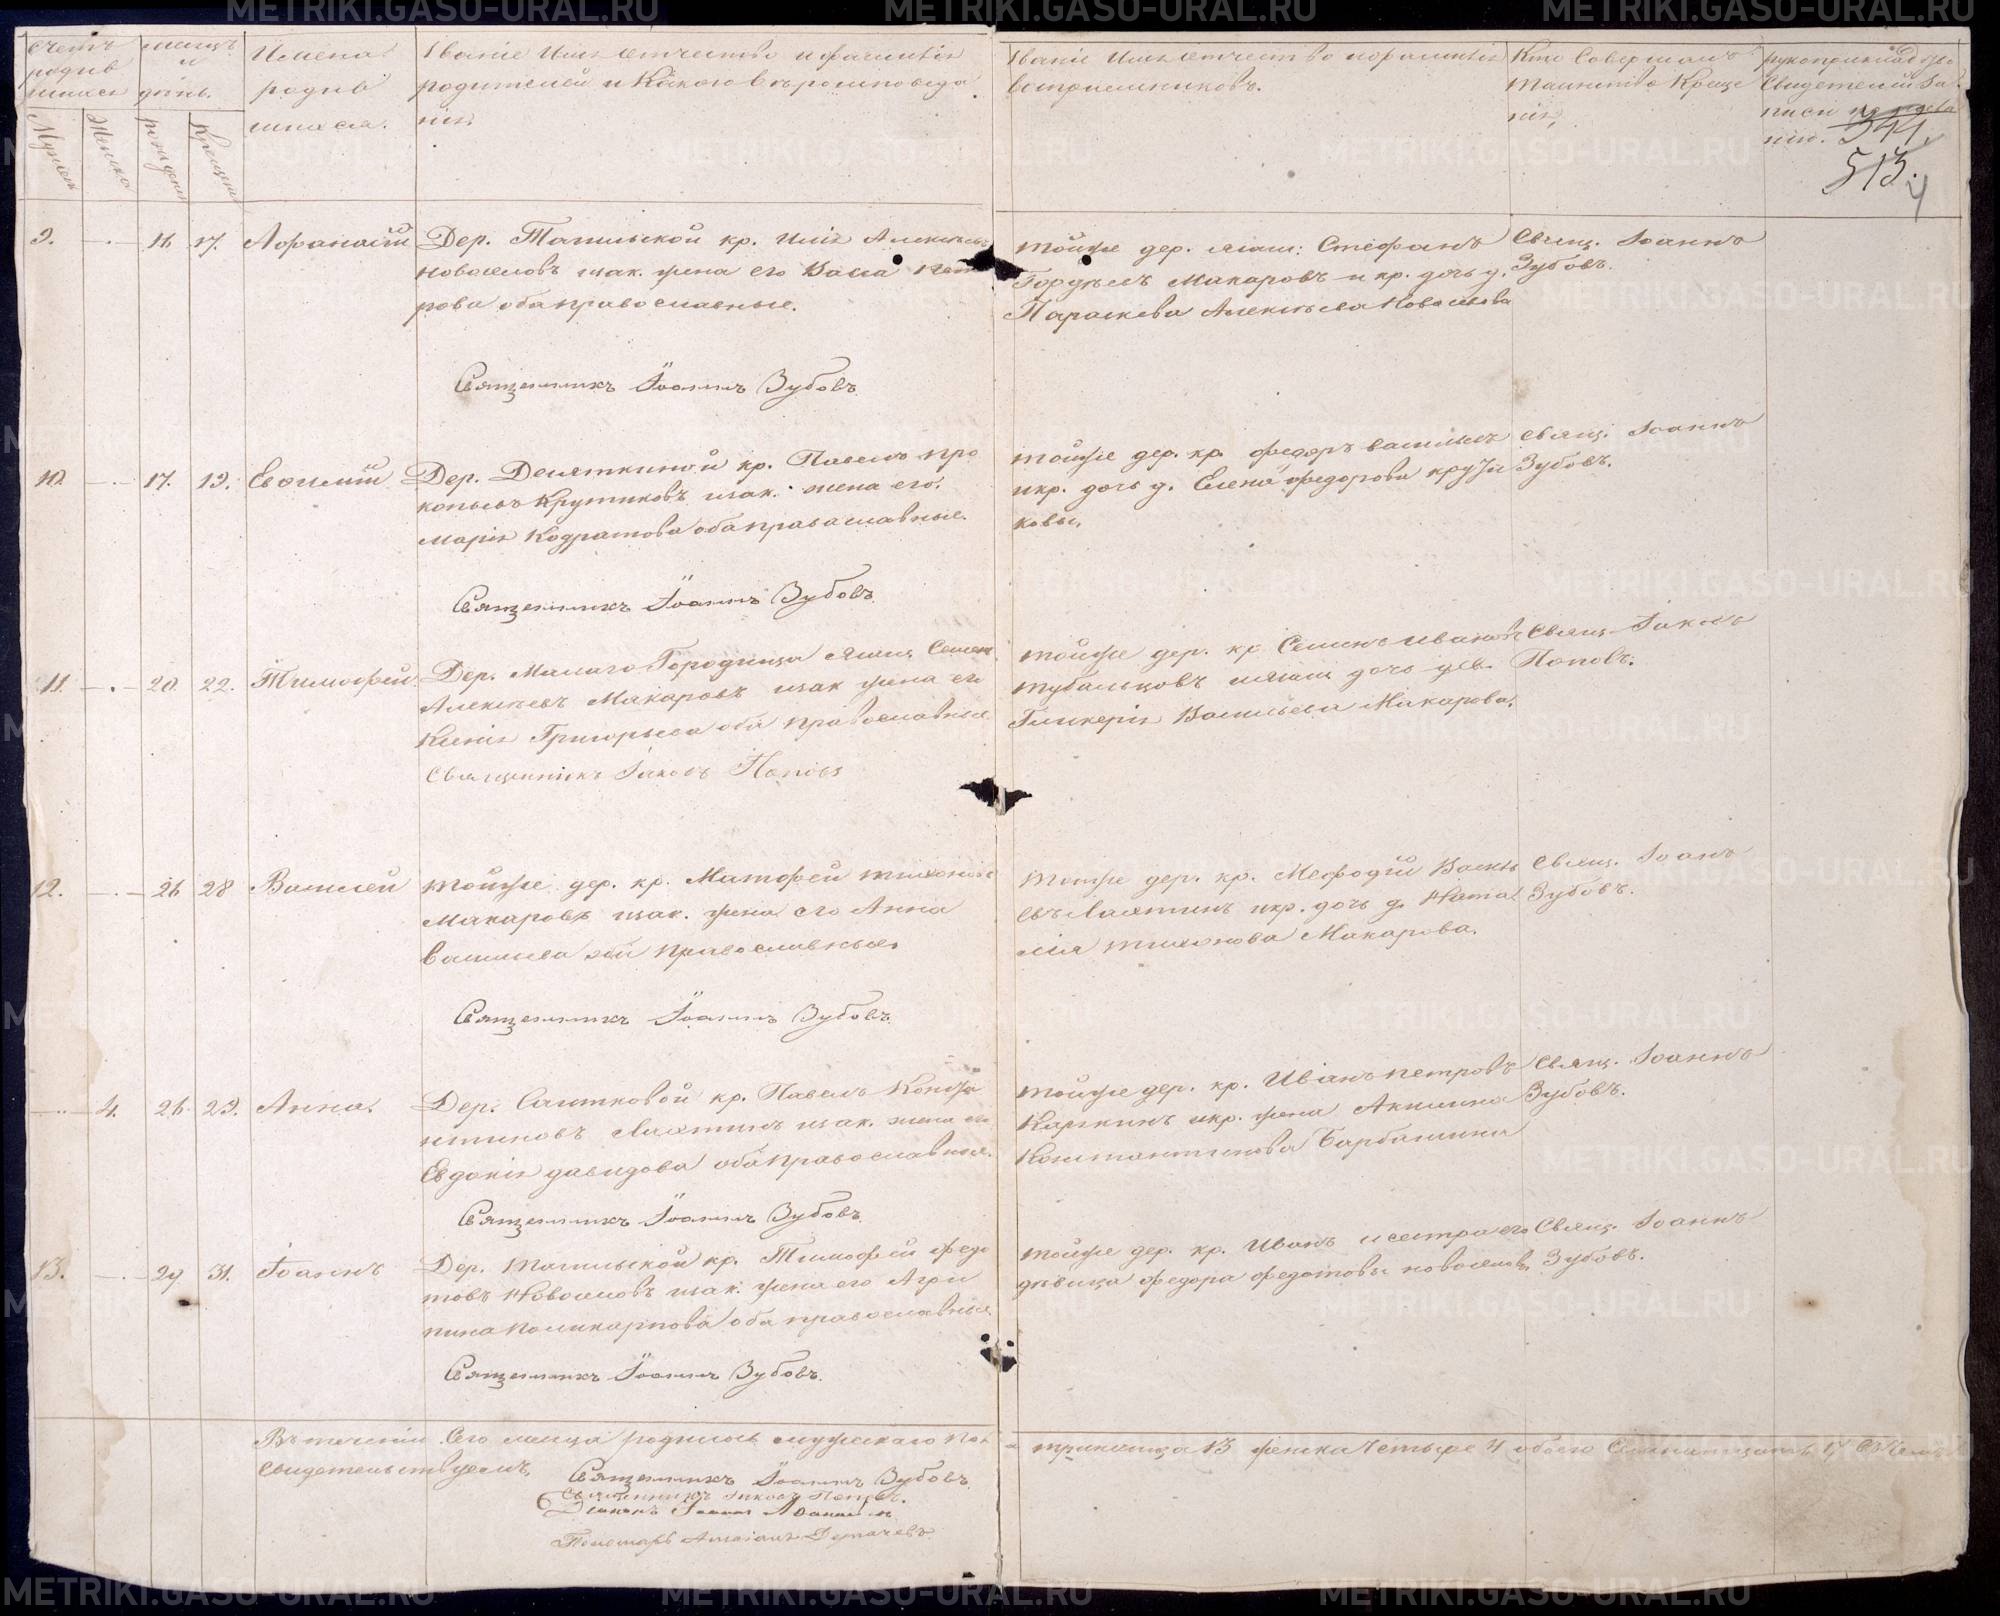 METRIKI.GASO-URAL.RU
Счетъ родив шихся
Мужеск
Женска
месяцъ и день.
рожденія
крещенія
Имена родив шихся.
Званіе Имя отчество и фамилія
родителей и Какого въроисповеда
нія.
Званіе Имя отчество и фамилія
воспріемниковъ.
Кто Совершалъ
Таинство Креще
нія,
рукоприкладство
Свидетелей За
писи по жела
нію.
241.
513.
4
9. 16 17. Афанасій
Дер. Тагильской кр. Илія Алексѣевъ
Новоселовъ зак. жена его Васса Пет
рова оба православные.
Священникъ Іоаннъ Зубовъ
тойже дер. ямщ: Стефанъ
Гордѣевъ Макаровъ и кр. дочь д.
Параскева Алексѣева Новоселова
Свящ. Іоаннъ
Зубовъ.
10. 17. 19. Евфимій
Дер. Деляткиной кр. Павелъ Про
копьевъ Крутиковъ зак. жена его
Марія Кодратова оба православные.
Священникъ Іоаннъ Зубовъ
тойже дер. кр. Федоръ Васильевъ
и кр. дочь д. Елена Федорова Крути
ковы,
Свящ. Іоаннъ
Зубовъ.
11. 20. 22. Тимофей
Дер. Малаго Городища Ямщ Семенъ
Алексѣевъ Макаровъ зак жена его
Ксенія Григорьева оба православные
Священникъ Іаковъ Поповъ
тойже дер. кр Семенъ Ивановъ
Тубальцовъ ямщ дочь дев.
Гликерія Васильева Макарова.
Свящ Іаковъ
Поповъ.
12. 26 28 Василей
тойже дер. кр. Матфей Тихоновъ
Макаровъ зак. жена его Анна
Васильева оба православные
Священникъ Іоаннъ Зубовъ
тойже дер. кр. Мефодій Василь
евъ Лаптинъ и кр. дочь д. Ната
лія Тихонова Макарова.
Свящ. Іоаннъ
Зубовъ.
4. 26. 29. Анна.
Дер. Салтковой кр. Павелъ Конста
нтиновъ Лаптинъ зак. жена его
Евдокія Давидова оба православные.
Священникъ Іоаннъ Зубовъ
тойже дер. кр. Иванъ Петровъ
Карякинъ и кр. жена Акилина
Константинова Барбашина
Свящ. Іоаннъ
Зубовъ.
13. 29 31. Іоаннъ
Дер. Тагильской кр. Тимофей Федо
товъ Новоселовъ зак. жена его Агри
пина Поликарпова оба православные
Священникъ Іоаннъ Зубовъ.
тойже дер. кр. Иванъ и сестра его
дѣвица Федора Федотовы Новоселовы
Свящ. Іоаннъ
Зубовъ.
Въ теченіи Сего месяца родилось мужескаго пол
а тринатца 13 женска Четыре 4 обоего Семнатцать 17 Въ чемъ
Свидетельствуемъ,
Священникъ Іоаннъ Зубовъ
Священникъ Іаковъ Поповъ.
Діаконъ Іоаннъ
Пономарь